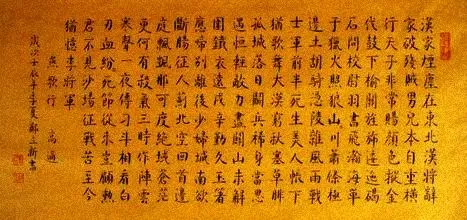 漢家煙塵在東北漢將辭
家破殘賊男兒本自重橫
行天子非常賜顏色摐金
伐鼓下榆關旌旆逶迤碣
石間校尉羽書飛瀚海單
于獵火照狼山川蕭條極
邊土胡騎憑陵雜風雨戰
士軍前半死生美人帳下
猶歌舞大漠窮秋塞草腓
孤城落日鬥兵稀身當恩
遇恒輕敵力盡關山未解
圍鐵衣遠戍辛勤久玉箸
應啼別離後少婦城南欲
斷腸征人薊北空回首邊
庭飄颻那可度絕域蒼茫
更何有殺氣三時作陣雲
寒聲一夜傳刁斗相看白
刃血紛死節從來豈顧勳
君不見沙場征戰苦至今
猶憶李將軍
燕歌行 高適
歲次壬辰年夏鄭立新書